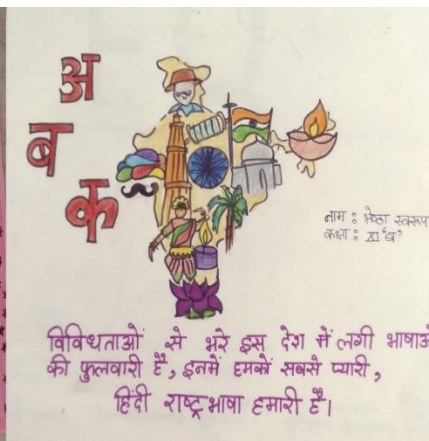 अ
ब
क
नाम : श्रेष्ठा स्वरूप
कक्षा : XI 'ब'
विविधताओं से भरे इस देश में लगी भाषाओं
की फुलवारी है, इनमें हमको सबसे प्यारी,
हिंदी राष्ट्रभाषा हमारी है।